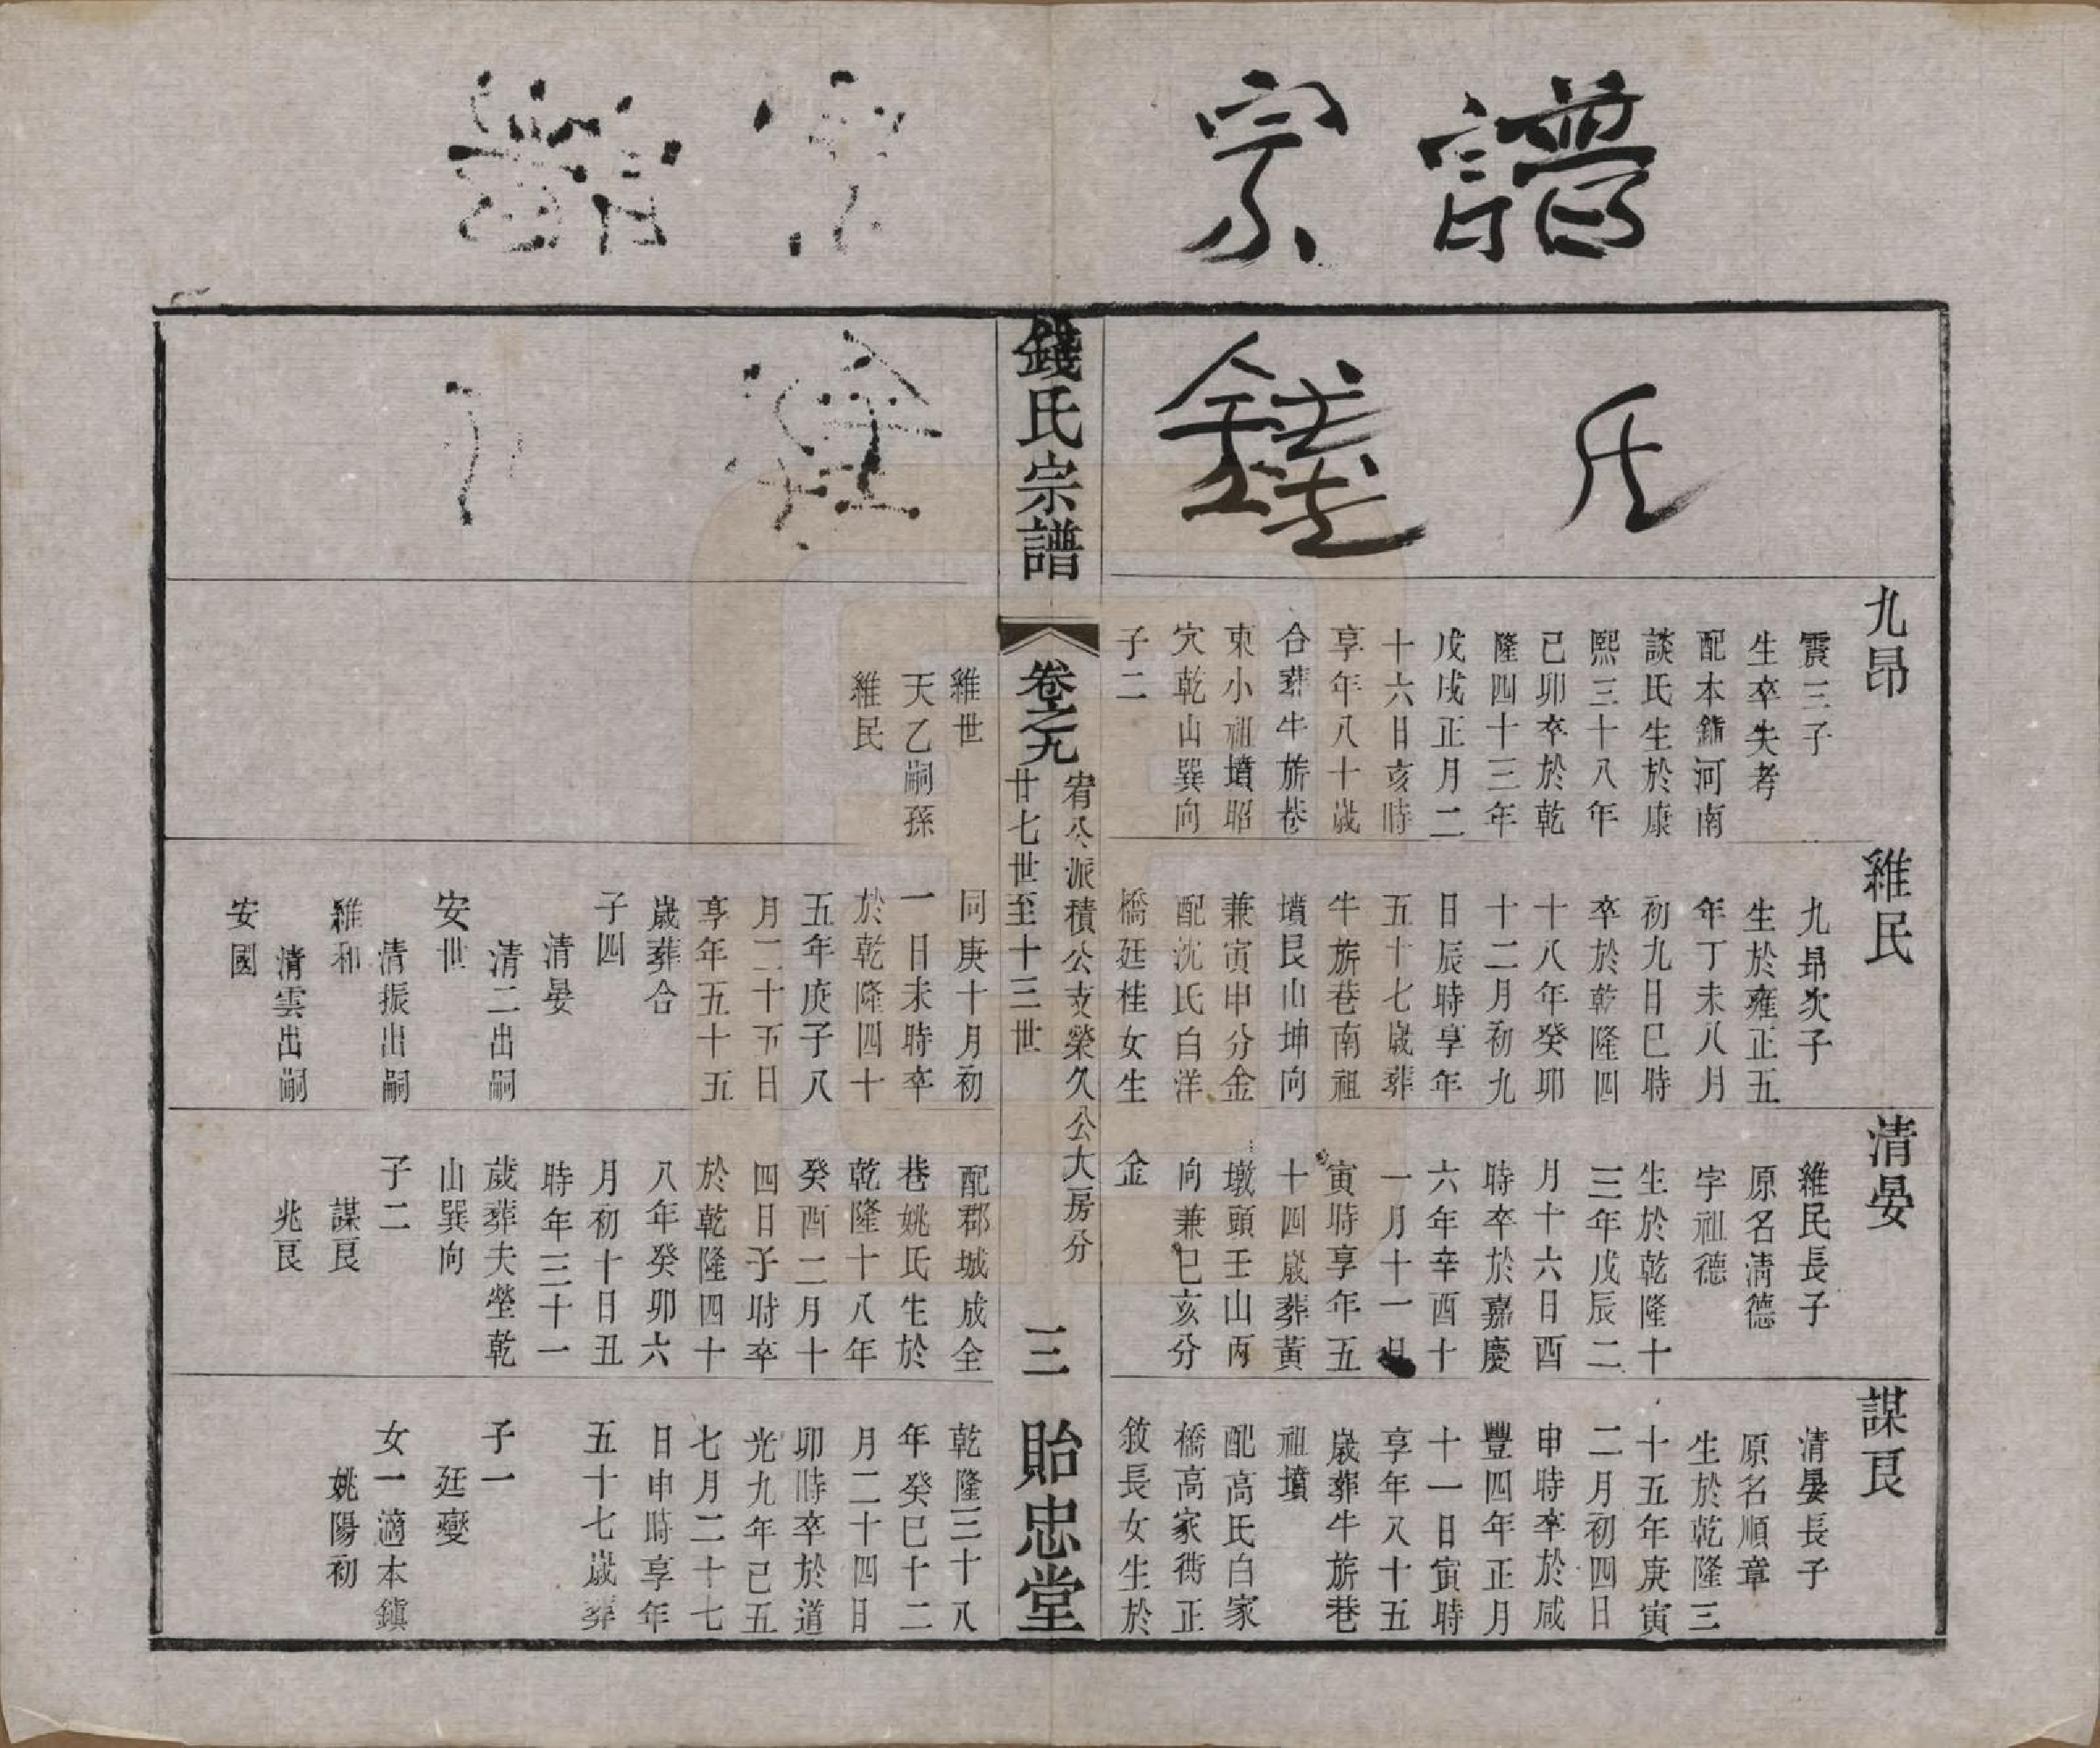 宗譜
錢氏
九昂
震三子
生卒失考
配本鎮河南
談氏生於康
熙三十八年
己卯卒於乾
隆四十三年
戊戌正月二
十六日亥時
享年八十歲
合葬牛旂巷
東小祖墳昭
穴乾山巽向
子二
維世
天乙嗣孫
維民
維民
九昻次子
生於雍正五
年丁未八月
初九日巳時
卒於乾隆四
十八年癸卯
十二月初九
日辰時享年
五十七歲葬
牛旂巷南祖
墳艮山坤向
兼寅申分金
配沈氏白洋
橋廷桂女生
同庚十月初
一日未時卒
於乾隆四十
五年庚子八
月二十五日
享年五十五
歲葬合
子四
清晏
清二出嗣
安世
清振出嗣
維和
清雲出嗣
安國
清晏
維民長子
原名清德
字祖德
生於乾隆十
三年戊辰二
月十六日酉
時卒於嘉慶
六年辛酉十
一月十一日
寅時享年五
十四歲葬黃
墩頭壬山丙
向兼巳亥分
金
配郡城成全
巷姚氏生於
乾隆十八年
癸酉二月十
四日子時卒
於乾隆四十
八年癸卯六
月初十日丑
時年三十一
歲葬夫塋乾
山巽向
子二
謀艮
兆艮
謀艮
清晏長子
原名順章
生於乾隆三
十五年庚寅
二月初四日
申時卒於咸
豐四年正月
十一日寅時
享年八十五
歲葬牛旂巷
祖墳
配高氏白家
橋高家衖正
敘長女生於
乾隆三十八
年癸巳十二
月二十四日
卯時卒於道
光九年己五
七月二十七
日申時享年
五十七歲葬
子一
廷燮
女一適本鎮
姚陽初
錢氏宗譜
卷之九
宥公派積公支榮久公大房分
廿七世至十三世
三
貽忠堂